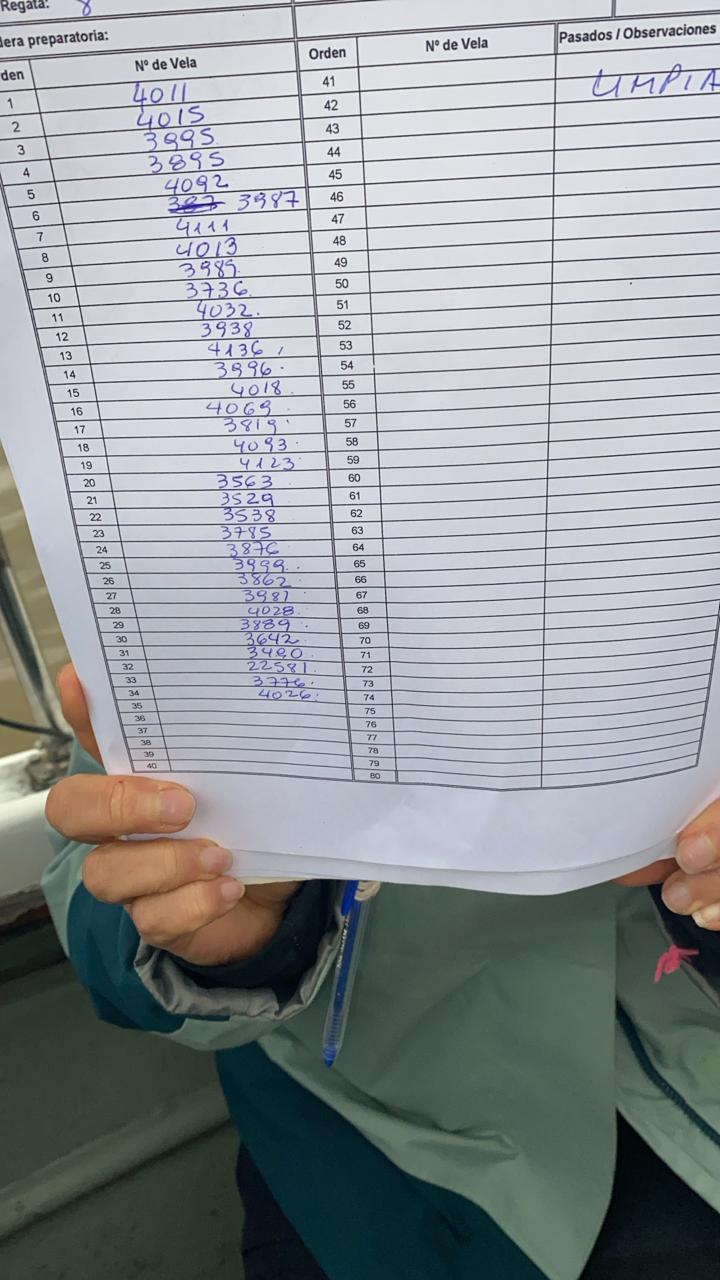 Regata: 8
dera preparatoria:
den Nº de Vela Orden Nº de Vela Pasados / Observaciones
1 4011 41 LIMPIA
2 4015 42
3 3995 43
4 3895 44
5 4092 45
6 387 3987 46
7 4111 47
8 4013 48
9 3989 49
10 3736 50
11 4032 51
12 3938 52
13 4136 53
14 3996 54
15 4018 55
16 4069 56
17 3819 57
18 4093 58
19 4123 59
20 3563 60
21 3529 61
22 3538 62
23 3785 63
24 3876 64
25 3999 65
26 3862 66
27 3981 67
28 4028 68
29 3889 69
30 3642 70
31 3490 71
32 22581 72
33 3776 73
34 4026 74
35 75
36 76
37 77
38 78
39 79
40 80